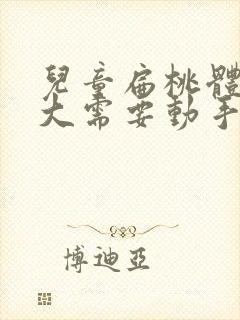 兒童扁桃體
大需要動手
博迪亞